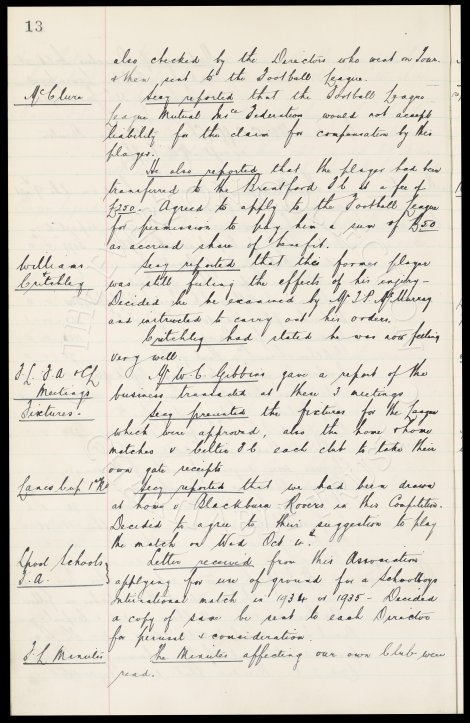 13
also checked by the Directors who went on Tour.
& then sent to the Football League.
McClure
Secy reported that the Football League
League Mutual Insce Federation would not accept
liability for the claim for compensation by this
player.
He also reported that the player had been
transferred to the Brentford F.C. at a fee of
£250. Agreed to apply to the Football League
for permission to pay him a sum of £50
as accrued share of benefit.
Williams
& Critchley
Secy reported that the former player
was still feeling the effects of his injury -
Decided he be examined by Mr T.P. McMurray
and instructed to carry out his orders.
Critchley had stated he was now feeling
very well.
F.L. F.A. & CL
Meetings
Mr W.C. Gibbins gave a report of the
business transacted at these 3 meetings
Fixtures.
Secy presented the fixtures for the League
which were approved, also the home & home
matches v Celtic F.C. each club to take their
own gate receipts
Lancs Cup 1st Rd
Secy reported that we had been drawn
at home v Blackburn Rovers in this Competition.
Decided to agree to their suggestion to play
the match on Wed Oct
Lpool Schools
F.A.
Letter received from this Association
applying for use of ground for a Schoolboys
International match in 1934 or 1935 - Decided
a copy of same be sent to each Director
for perusal & consideration.
F.L. Minutes
The Minutes affecting our own Club were
read.